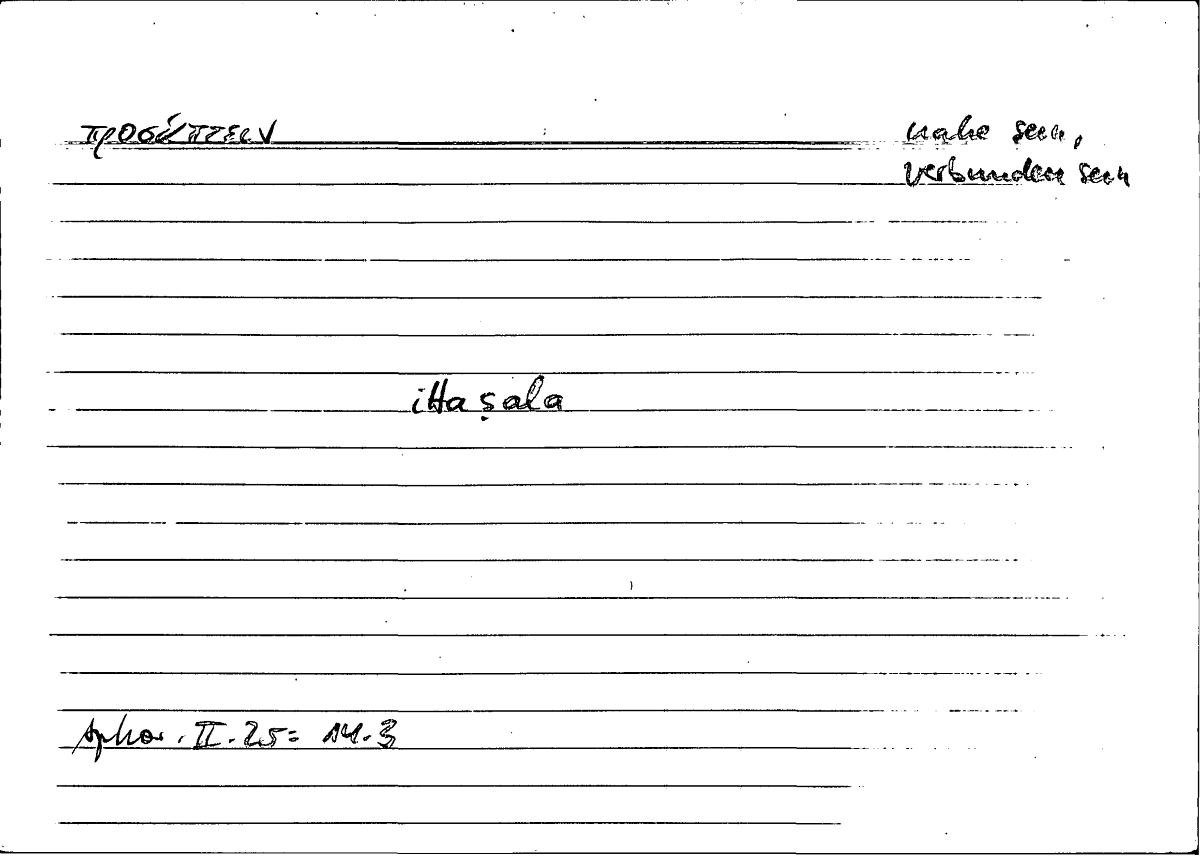 προσάπτειν
nahe sein,
verbunden sein
ittaṣala
Aphor. II. 25 = 14.3